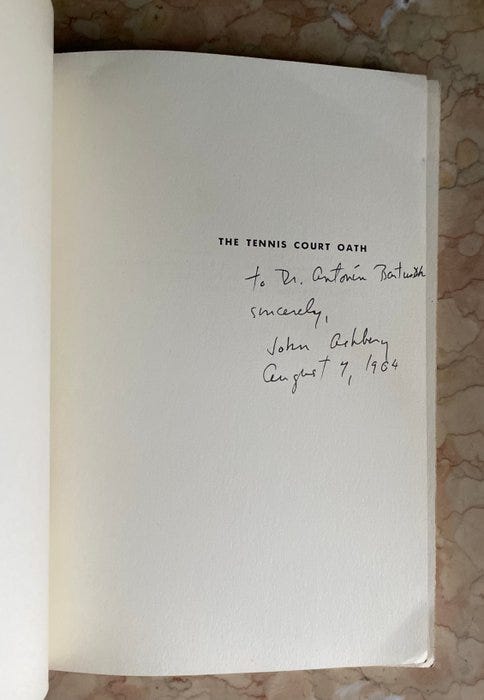 THE TENNIS COURT OATH
to Dr. Antonín
sincerely,
John Ashbery
August 7, 1964